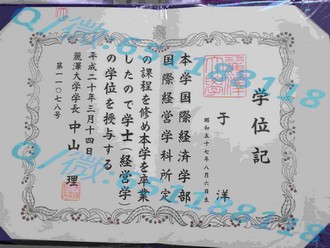 学位記
于 洋
昭和五十七年八月六日生
本学国際経済学部
国際経営学科所定
の課程を修め本学を卒業
したので学士(経営学)
の学位を授与する
平成二十年三月十四日
麗澤大学学長 中山 理
第一一〇七八号